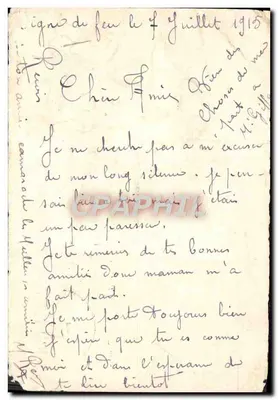 igne de feu le 7 Juillet 1915
Chère Amie
Bien des
Choses de ma
part a
Je ne cherche pas a m'excuser
de mon long silence. je pen-
sais bien a toi mais j'étais
un peu paresseux.
Je te remercie de tes bonnes
amitiés dont maman m'a
fait part.
Je me porte toujours bien
J'espère que tu es comme
moi et dans l'espérance de
te lire bientot
Reçois
ton ami camarade les meilleures amitiés